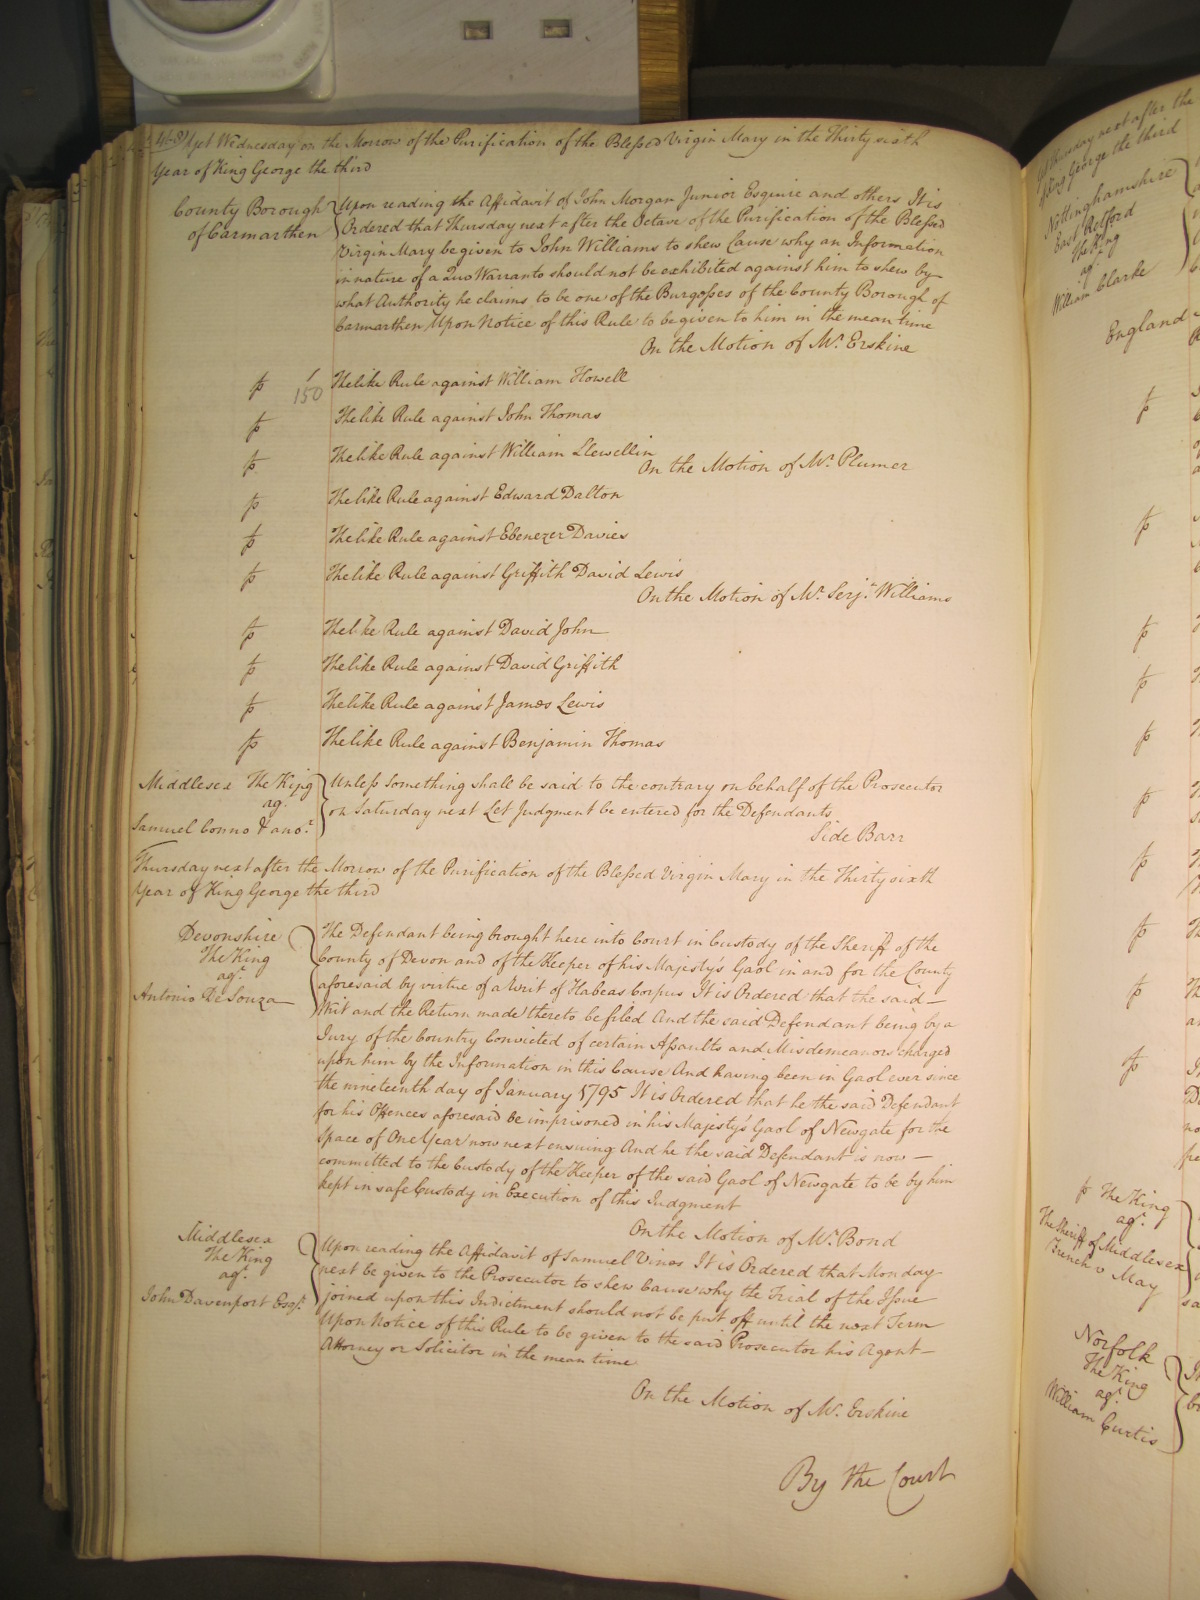 Yet Wednesday on the Morrow of the Purification of the Blessed Virgin Mary in the Thirty sixth
Year of King George the third
County Borough
of Carmarthen
Upon reading the Affidavit of John Morgan Junior Esquire and others It is
Ordered that Thursday next after the Octave of the Purification of the Blessed
Virgin Mary be given to John Williams to shew Cause why an Information
in nature of a Quo Warranto should not be exhibited against him to shew by
what Authority he claims to be one of the Burgesses of the County Borough of
Carmarthen Upon Notice of this Rule to be given to him in the mean time
On the Motion of Mr. Erskine
150
The like Rule against William Howell
The like Rule against John Thomas
The like Rule against William Llewellin
On the Motion of Mr. Plumer
The like Rule against Edward Dalton
The like Rule against Ebenezer Davies
The like Rule against Griffith David Lewis
On the Motion of Mr. Serjt. Williams
The like Rule against David John
The like Rule against David Griffith
The like Rule against James Lewis
The like Rule against Benjamin Thomas
Middlesex The King
agt.
Samuel Conno & anor.
Unless something shall be said to the contrary on behalf of the Prosecutor
on Saturday next Let Judgment be entered for the Defendants
Side Barr
Thursday next after the Morrow of the Purification of the Blessed Virgin Mary in the Thirty sixth
Year of King George the third
Devonshire
The King
agt.
Antonio De Souza
The Defendant being brought here into Court in Custody of the Sheriff of the
County of Devon and of the Keeper of his Majesty's Gaol in and for the County
aforesaid by virtue of a Writ of Habeas Corpus It is Ordered that the said
Writ and the Return made thereto be filed And the said Defendant being by a
Jury of the Country Convicted of certain Assaults and Misdemeanors charged
upon him by the Information in this Cause And having been in Gaol ever since
the nineteenth day of January 1795 It is Ordered that he the said Defendant
for his Offences aforesaid be imprisoned in his Majesty's Gaol of Newgate for the
Space of One Year now next ensuing And he the said Defendant is now
committed to the Custody of the Keeper of the said Gaol of Newgate to be by him
kept in safe Custody in Execution of this Judgment
On the Motion of Mr. Bond
Middlesex
The King
agt.
John Davenport Esqr.
Upon reading the Affidavit of Samuel Vines It is Ordered that Monday
next be given to the Prosecutor to shew Cause why the Trial of the Issue
joined upon this Indictment should not be put off until the next Term
Upon Notice of this Rule to be given to the said Prosecutor his Agent
Attorney or Solicitor in the mean time
On the Motion of Mr. Erskine
By the Court
Yet Thursday next after the
of King George the third
Nottinghamshire
East Retford
The King
agt.
William Clarke
England
The King
agt.
The Sheriff of Middlesex
French v May
Norfolk
The King
agt.
William Curtis